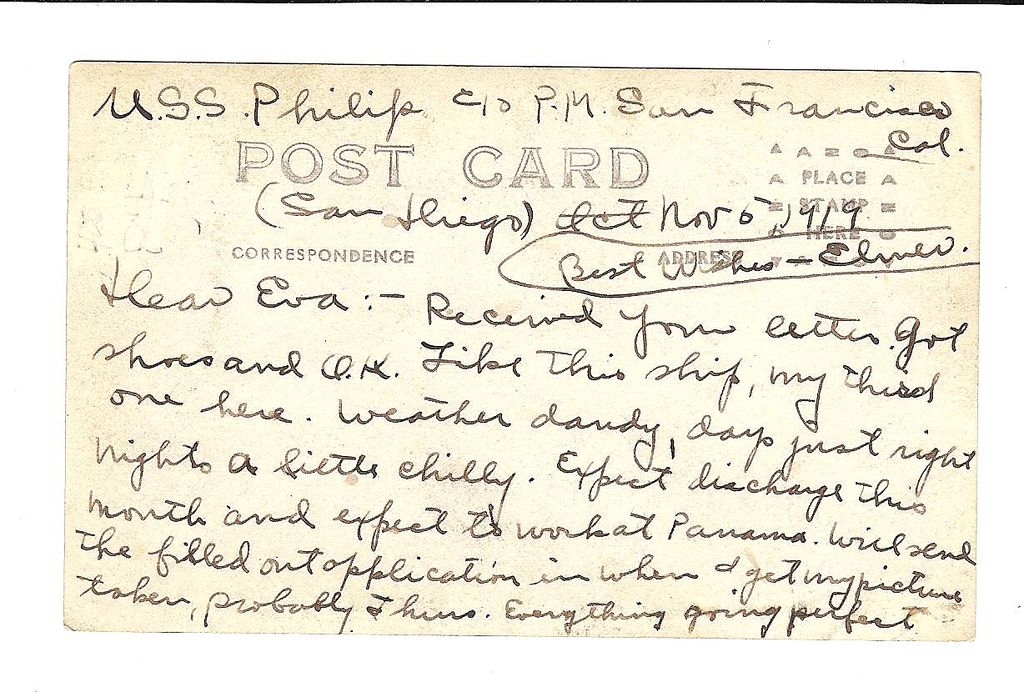 U.S.S. Philip c/o P.M. San Francisco
Cal.
POST CARD
PLACE
STAMP
HERE
(San Diego) Oct Nov 5, 1919
CORRESPONDENCE
ADDRESS
Best Wishes — Elmer.
Dear Eva:- Received your letter. Got
shoes and O.K. Like this ship, my third
one here. Weather dandy, days just right
nights a little chilly. Expect discharge this
month and expect to work at Panama. Will send
the filled out application in when I get my picture
taken, probably Thurs. Everything going perfect